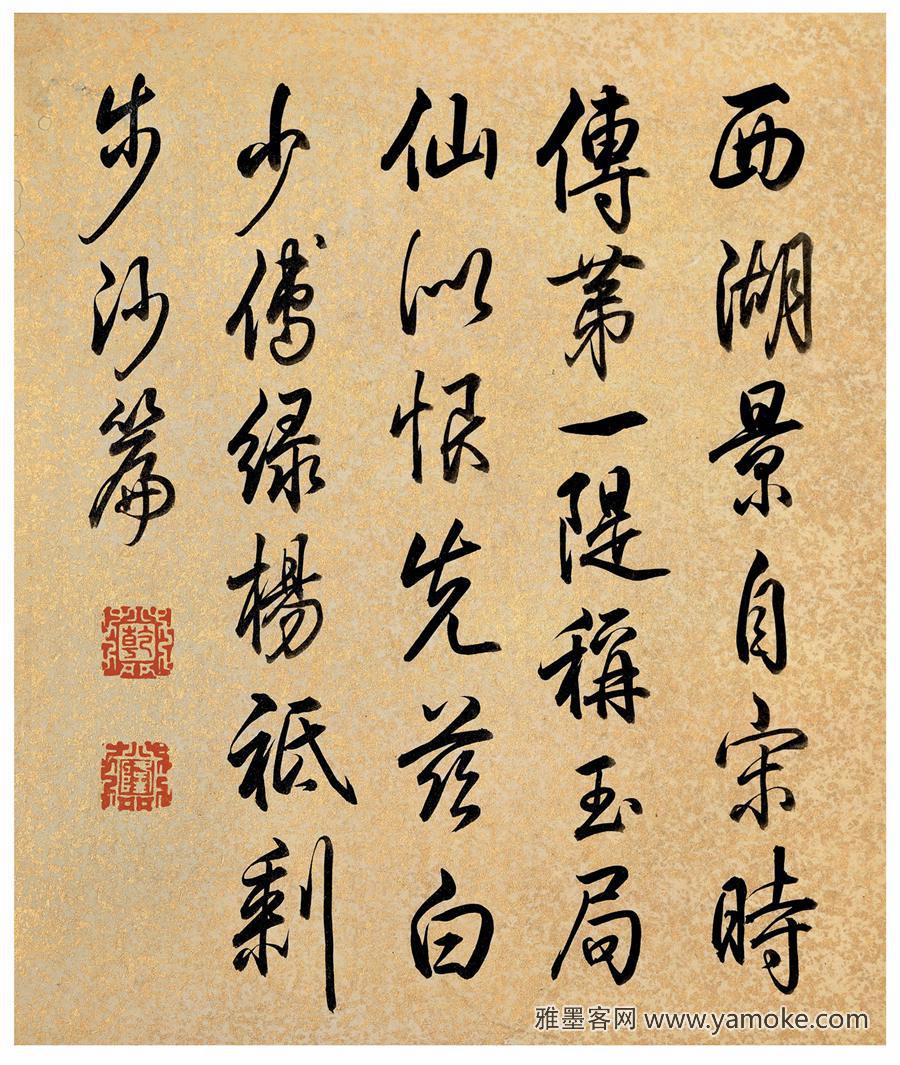 西湖景自宋時
傳第一隄稱玉局
仙似恨先茲白
少傅綠楊祗剩
步沙篇
乾
隆
雅墨客网 www.yamoke.com